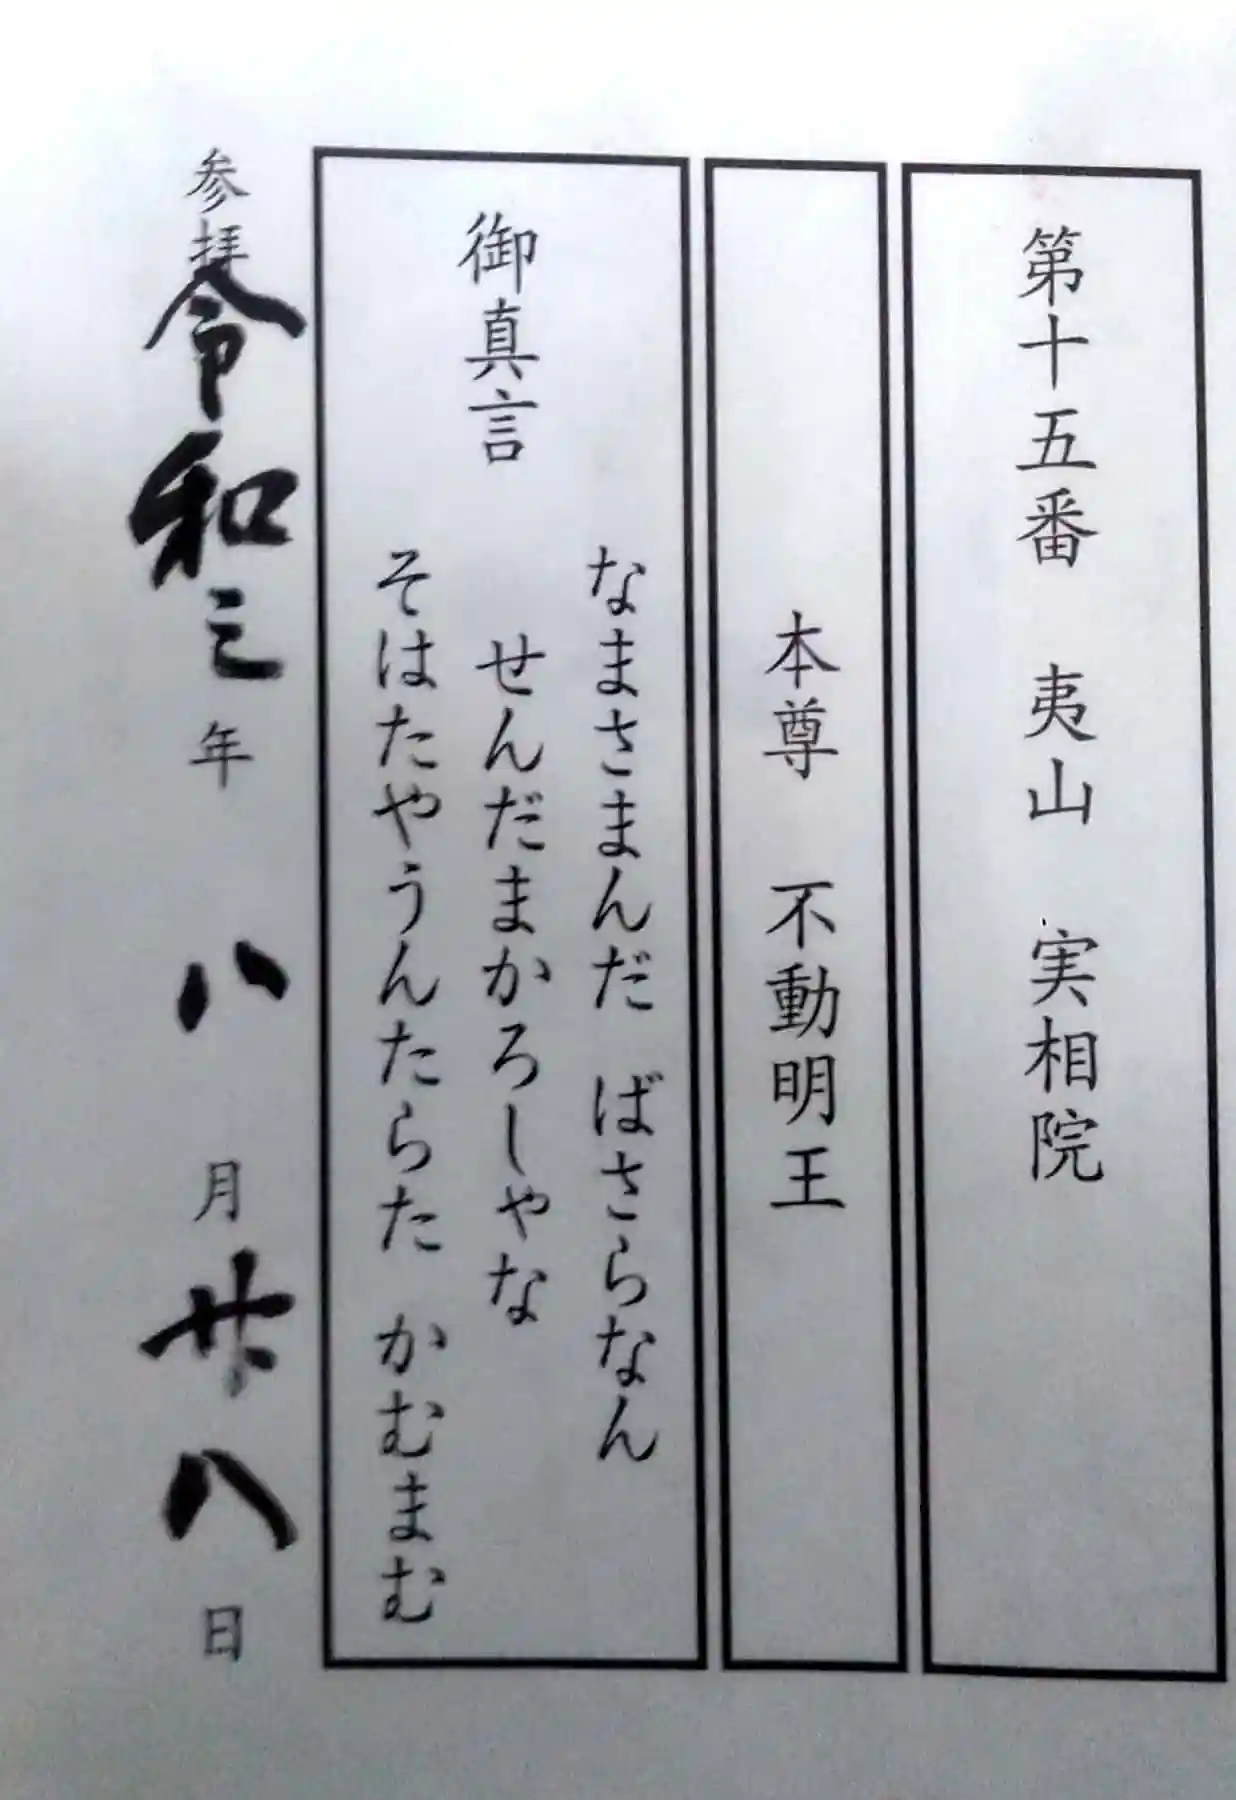 第十五番 夷山 実相院
本尊 不動明王
御真言
なまさまんだ ばさらなん
せんだまかろしやな
そはたやうんたらた かむまむ
参拝 令和三年 八月 廿八日